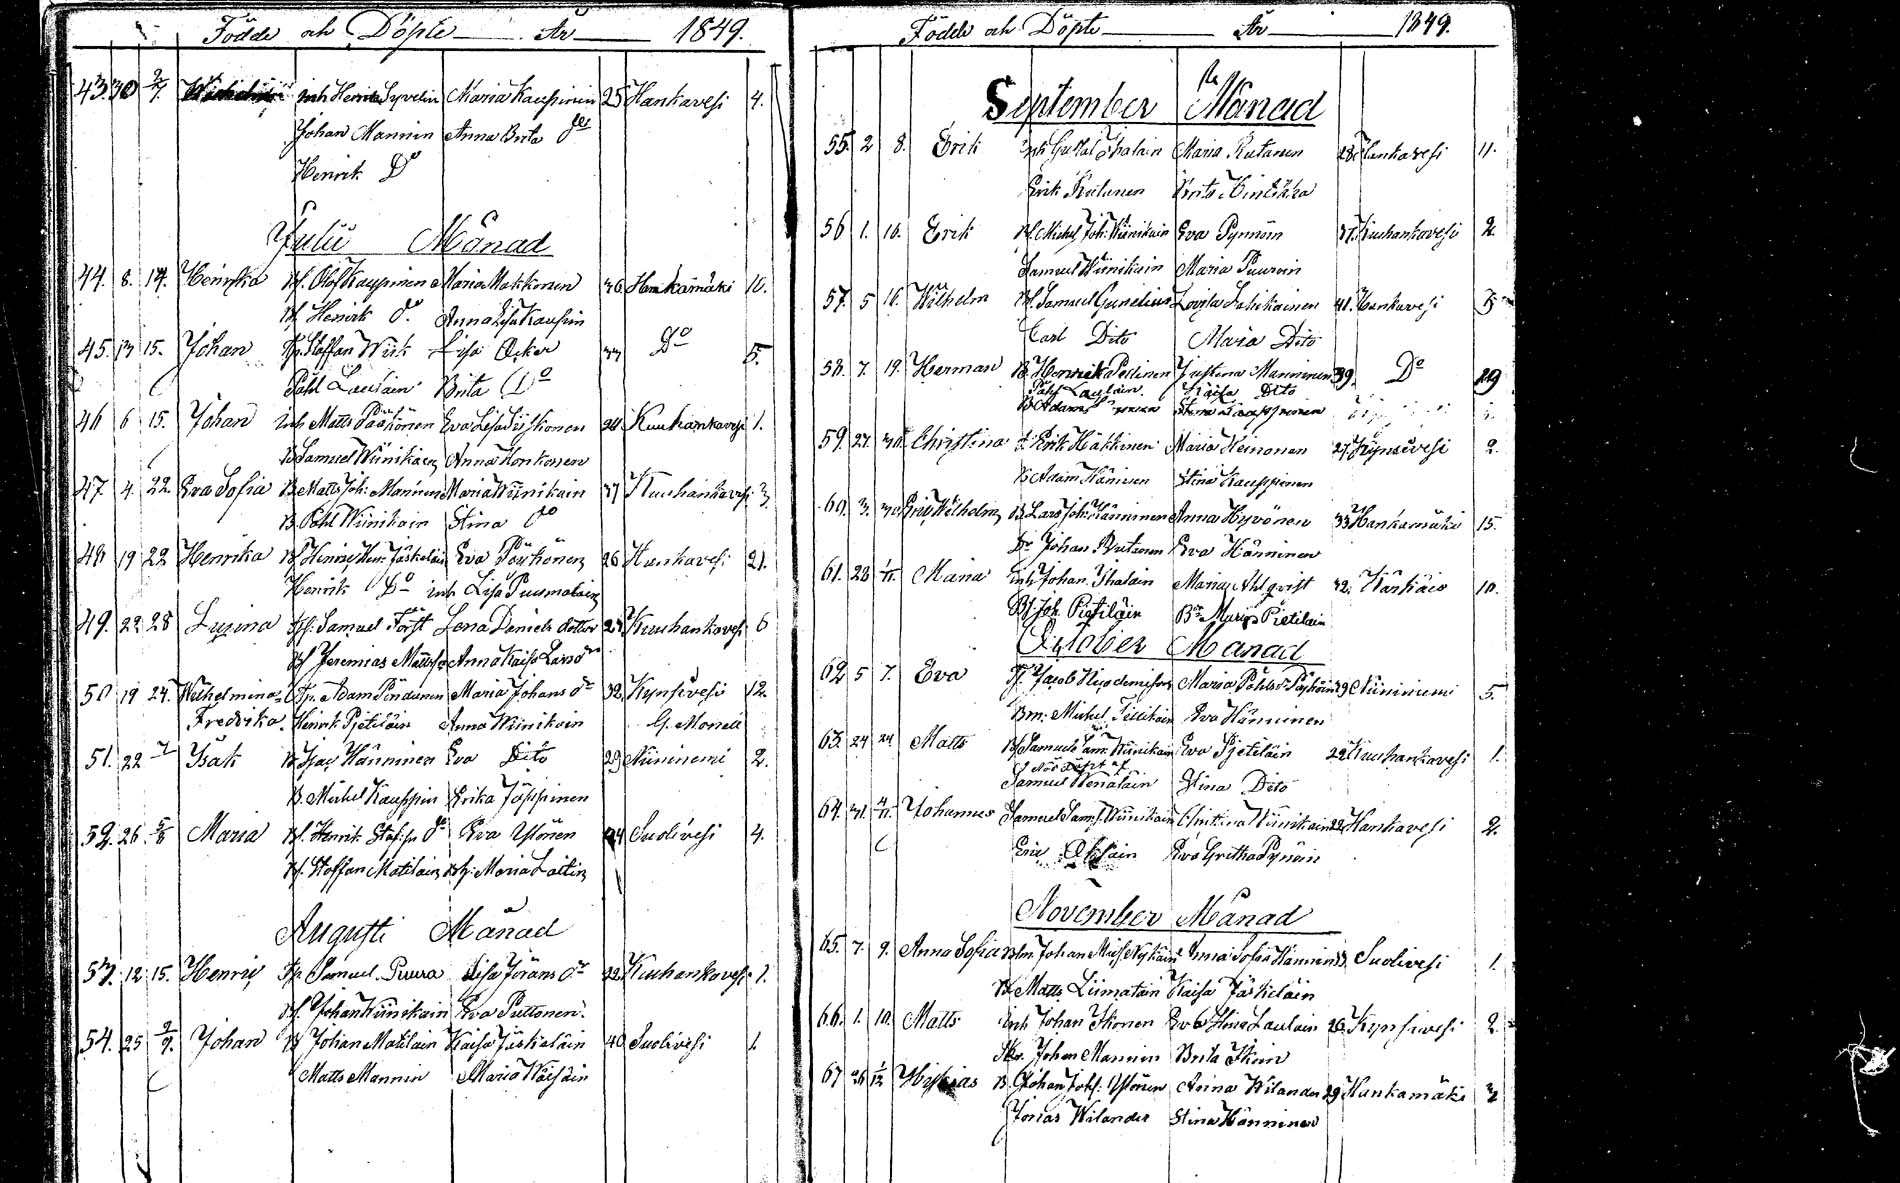 Födde och Döpte År 1849.
43. 30 2/7 Inh Henrik Syvelin Maria Kaupinen 25 Hankavesi 4.
Johan Mannin Anna Brita
Henrik Do
Julii Månad
44. 8. 14. Henrika Olof Kaupinen Maria Makkonen 36 Hankamäki 10.
Henrik do Anna Lisa Kaupin
45. 13 15. Johan Staffan Wisk Lisa Do 5.
Påhl Laulain Brita Do
46 6 15. Johan inh Matts Pääkönen Eva Lisa Kuuhankavesi 1.
Samuel Wiinikain Anna Honkonen
47. 4. 22. Eva Sofia B. Matts Joh: Manninen Maria Wiinikain 37 Kuuhankavesi 3
B. Påhl Wiinikain Stina do
48 19 22 Henrika Henric Hen: Jäskeläin Eva 26 Hankavesi 21.
Henrik Do inh Lisa
49. 22 28 Samuel Först Lena Daniels dotter 27 Kuuhankavesi 6
Jeremias Mattss Anna Kaisa Lars dr
50 19 24. Wilhelmina Adam Maria Johans dr 32 Kynsivesi 12.
Fredrika. Henrik Pietiläin Anna Wiinikain G. Monell
51. 22 Isak Isac Hänninen Eva Dito 29 Niininiemi 2.
B. Mickel Kauppin Erika Jäppinen
52. 26 5/8 Maria Henrik Eva Ylönen 44 Suolivesi 4.
Staffan Matilain Maria Laitin
Augusti Månad
53. 12 15. Henric Samuel Puura Lisa Jörans dr 22 Kuuhankavesi 1.
Johan Wiinikain Eva Puttonen.
54. 25 2/9. Johan Johan Matilain Kaisa Jäskeläin 40 Suolivesi 1.
Matts Mannin Maria
Födde och Döpte År 1849.
September Månad
55. 2 8. Erik inh Gustaf Ihalain Maria Rutanen 28 Hankavesi 11.
Erik Rutanen Brita Hintikka
56 1. 16. Erik Michel Joh: Wiinikain Eva Pynnöin 37. Kuuhankavesi 2.
Samuel Wiinikain Maria Puurin
57. 5 16. Wilhelm Samuel Gunelius Lovisa 41. Hankavesi 5
Carl Dito Maria Dito
58. 7. 19. Herman Henrik Justina Manninen 39. Do 29
Påhl Laulain. Kaisa Dito
B Adam Stina Kauppinen
59. 27. 30. Christina Erik Häkkinen Maria Heinonen 27. Kynsivesi 2.
B Adam Hänninen Stina Kauppinen
60. 3. 30. Eric Wilhelm B. Lars Joh: Hänninen Anna Hyvönen 33 Hankamäki 15.
Dr Johan Rutanen Eva Hänninen
61. 28 1/11. Maria inh Johan Ihalain Maria Ahlqvist 32. 10.
Joh. Pietiläin Maria Pietiläin
October Månad
62 5 7. Eva Jacob Maria Påhls dr 29 Niininiemi 5.
Bm: Michel Eva Hänninen
63. 24 24 Matts Samuels Sam: Wiinikain Eva Pietiläin 22 Kuuhankavesi 1.
Nöd döpt af
Samuel Wenäläin Stina Dito
64. 31. 4/11. Johannes Samuel Sam: Wiinikain Christina Wiinikain 22 Hankavesi 2.
Eric Eva Gretha Pynöin
November Månad
65. 7. 9. Anna Sofia Johan Anna Sofia Hännin Suolivesi 1.
Matts Liimatain Kaisa Jäskeläin
66. 1. 10. Matts Inh Johan Ikonen Eva Stina Laulain 26 Kynsivesi 2.
Johan Mannin Brita Ikoin
67 26 1/12 B. Johan Joh: Ylönen Anna Wilander 29 Hankamäki 2
Jonas Wilander Stina Hänninen